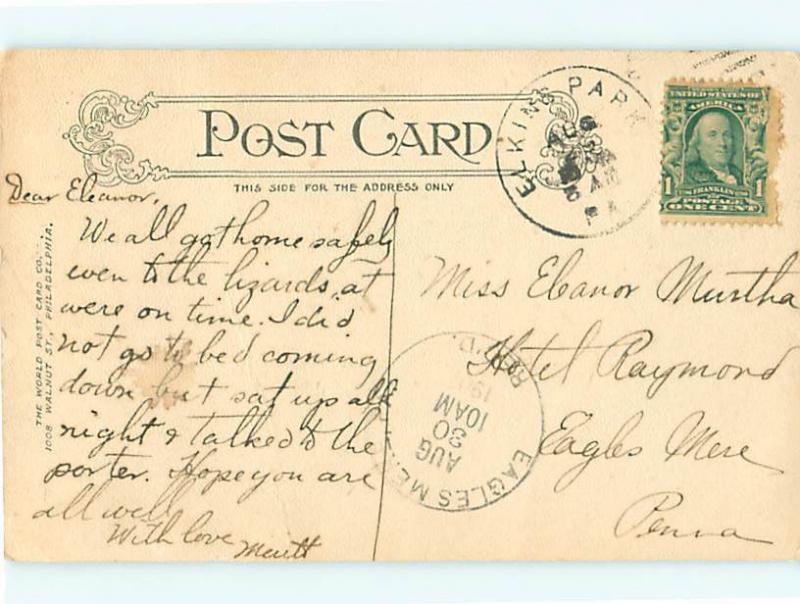 POST CARD
THIS SIDE FOR THE ADDRESS ONLY
ELKINS PARK
AUG
AM
PA
UNITED STATES OF
AMERICA
1 FRANKLIN 1
POSTAGE
ONE CENT
THE WORLD POST CARD CO.
1008 WALNUT ST., PHILADELPHIA.
Dear Eleanor,
We all got home safely
even to the lizards, at
were on time. I did
not go to bed coming
down but sat up all
night & talked to the
porter. Hope you are
all well
With love
Miss Eleanor Murtha
Hotel Raymond
Eagles Mere
Penna
EAGLES ME
REC'D.
AUG
30
10AM
19